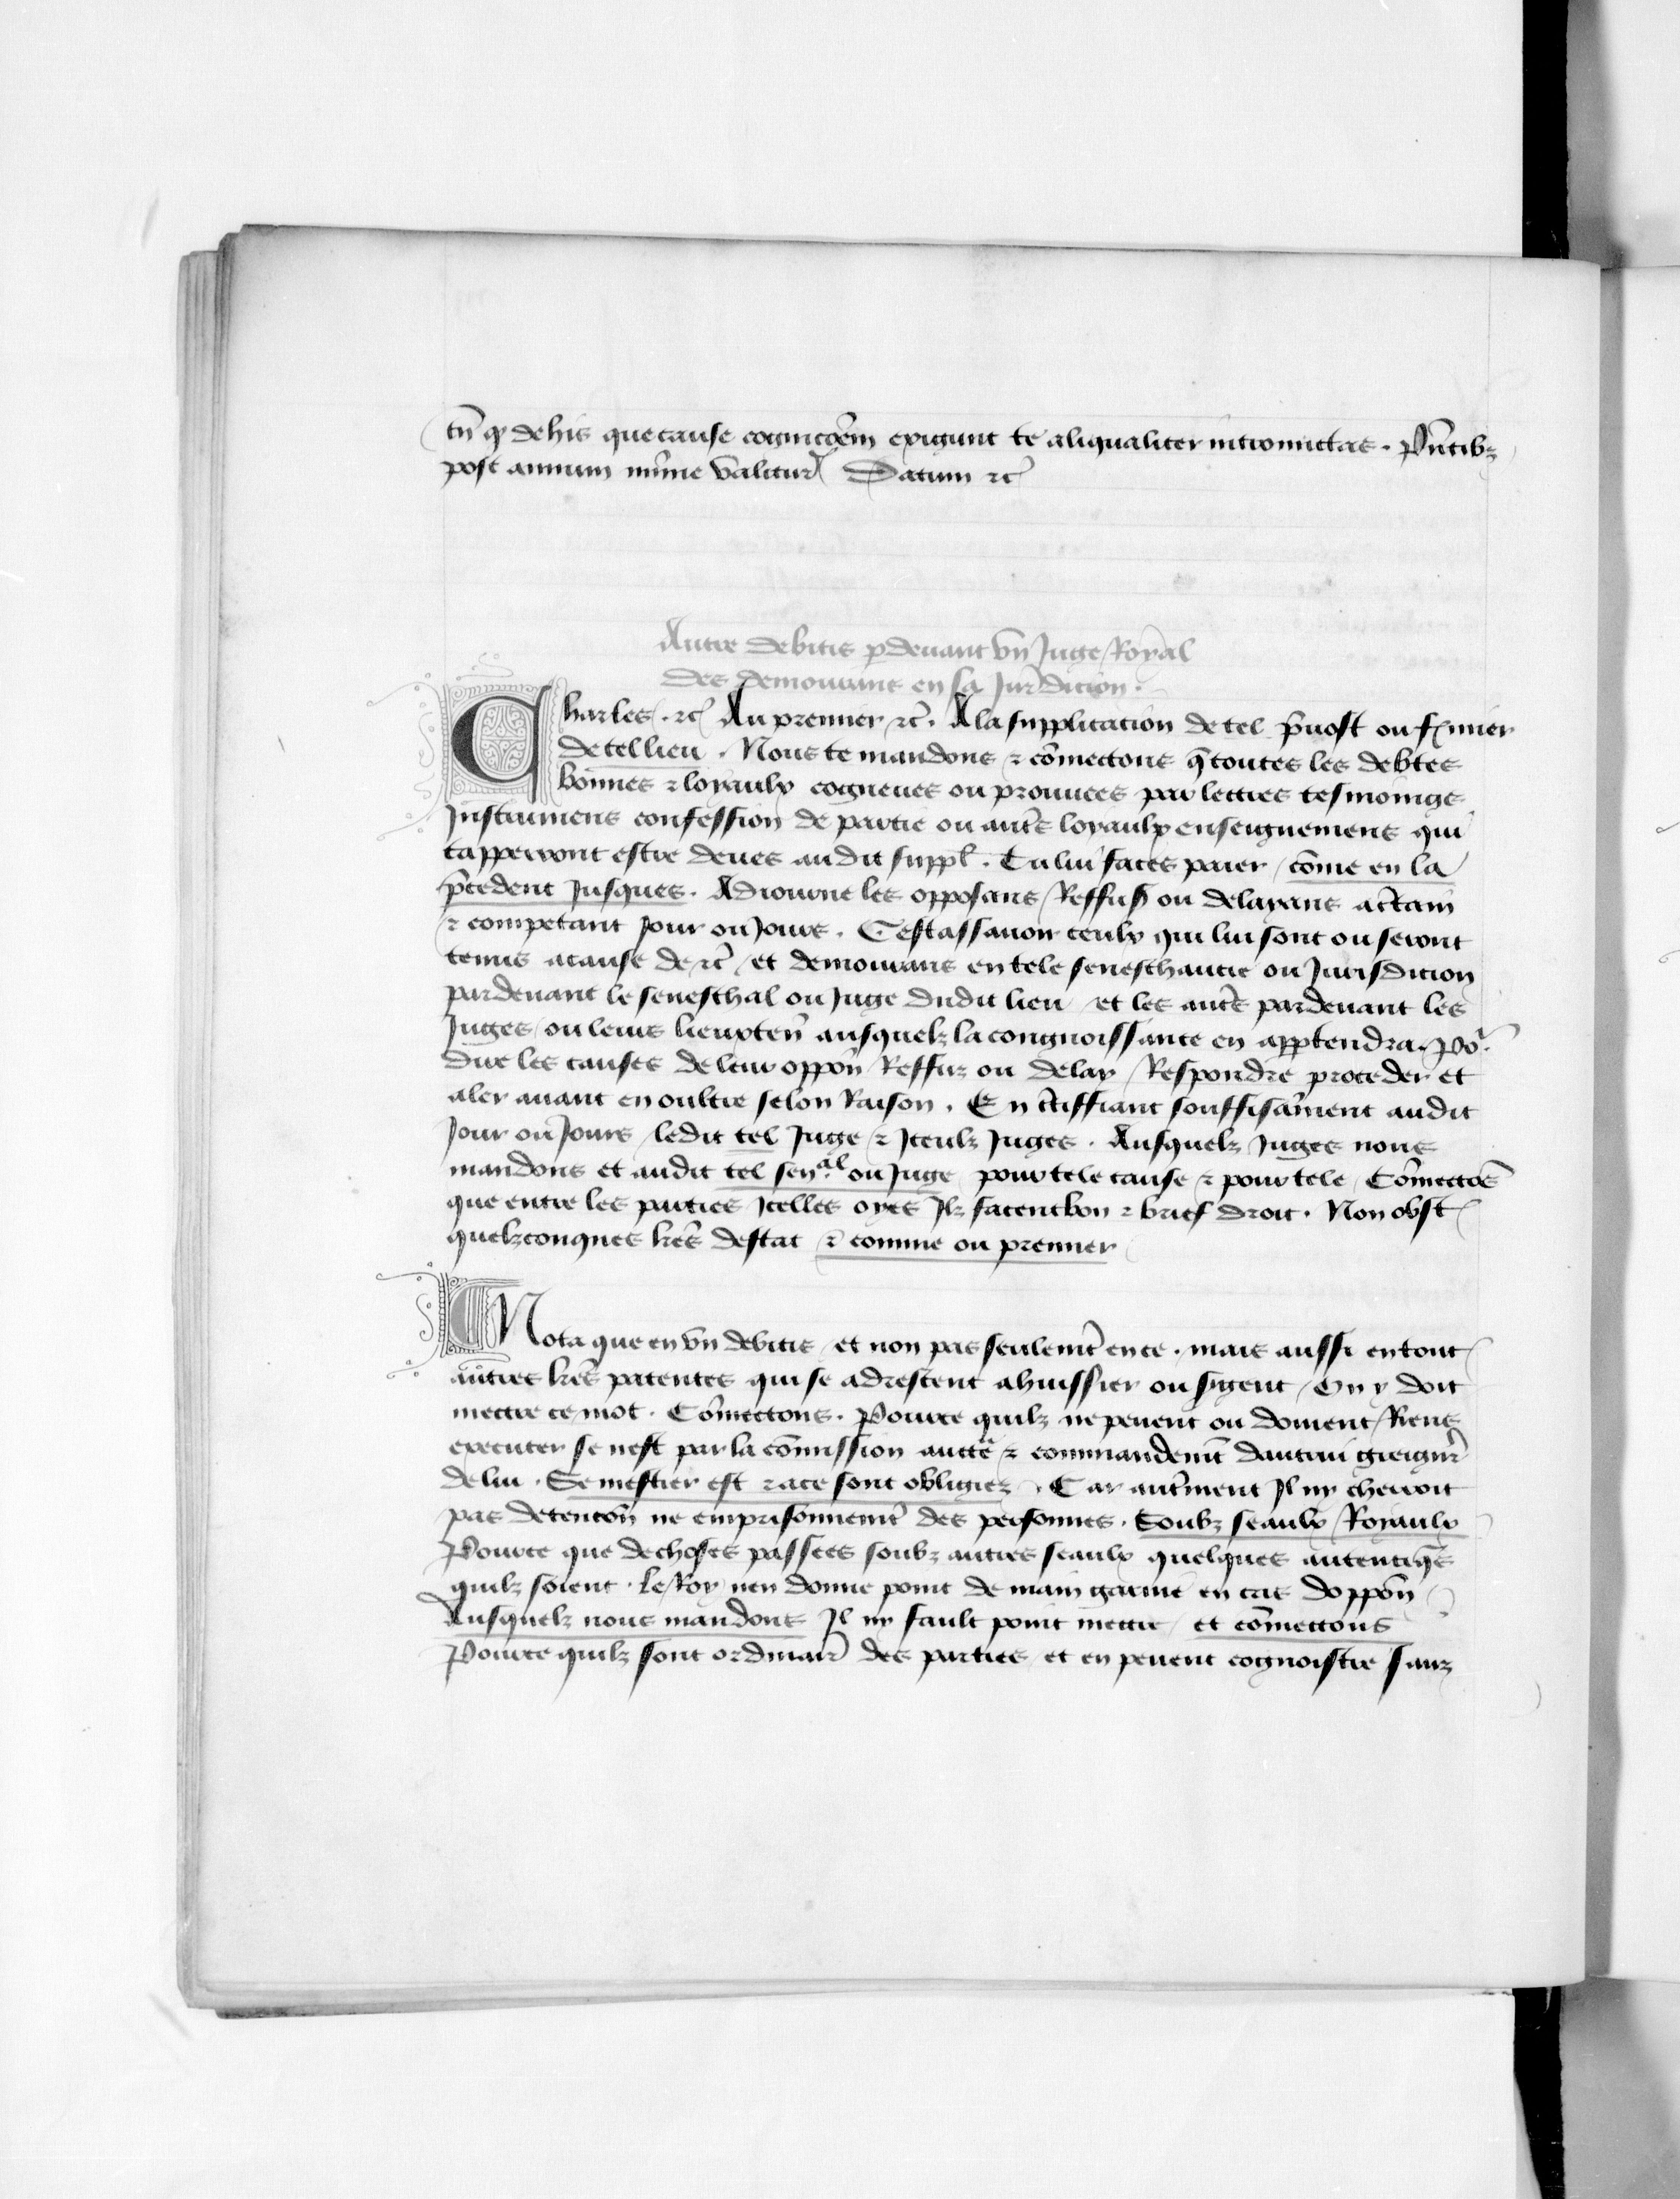 tn̄ qͥ de his que cause cognicōem exigunt te aliqualiter intromictas. Pn̄tibz
post annum mīme valitur̄ Datum ⁊c̄
Autre debitis ꝑdeuant vn̄ Juge Royal
des demourans en sa Jur̄dicion.
Charles. ⁊c̄ Au premier ⁊c̄. A la supplicacion de tel p̄uost ou fermier
de tel lieu. Nous te mandons ⁊ cōmectons q̄ toutes les debtes
bonnes ⁊ loyaulx cogneues ou prouuees par lectres tesmoings
Instrumens confession de partie ou autr̄s loyaulx enseignemens qui
tapperront estre deues audit suppl̄. Tu lui faces paier, cōme en la
p̄cedent Jusques. Adiourne les opposans Reffusās ou delayans a c̄tain
⁊ competant Jour ou Jours. Cestassauoir ceulx qui lui sont ou seront
tenus a cause de ⁊c̄, et demourans en tele seneschaucie ou Jurisdicion
pardeuant le seneschal ou Juge dudit lieu, et les autr̄s pardeuant les
Juges ou leurs lieuxten̄ ausquelz la congnoissance en app̄tendra. Poͬ.
dire les causes de leur oppōn Reffuz ou delay, Respondre proceder et
aler auant en oultre selon Raison. En c̄tiffiant souffisām̄ent audit
Jour ou Jours, ledit tel Juge ⁊ Iceulz Juges. Ausquelz Juges nous
mandons et audit tel sen.al ou Juge, pour tele cause ⁊ pour tele, Cōmectōs
que entre les parties Icelles oyes Ilz facent bon ⁊ brief droit. Non obst̄
quelzconques lr̄es destat ⁊ comme ou premier
Nota que en vn̄ debitis, et non pas seulem̄t en ce. mais aussi en tout
autres lr̄es patentes qui se adrescent a huissier ou s̄gent, On y doit
mectre ce mot. Cōmectons. Pource quilz ne peuent ou doiuent Riens
executer se nest par la cōmission auctē ⁊ commandem̄t dautrui greign̄r
de lui. Se mestier est ⁊ a ce sont obligiez. Car autr̄ment Il ny cherroit
pas detencōn ne emprisonnem̄t des personnes. Soubz seaulx Royaulx
Pource que de choses passees soubz autres seaulx quelques autentiq̄s
quilz soient. le Roy nen donne point de main garnie en cas doppōn
Ausquelz nous mandons Il ny fault point mectre, et cōmectons
Pource quilz sont ordinair̄ des parties, et en peuent cognoistre sanz